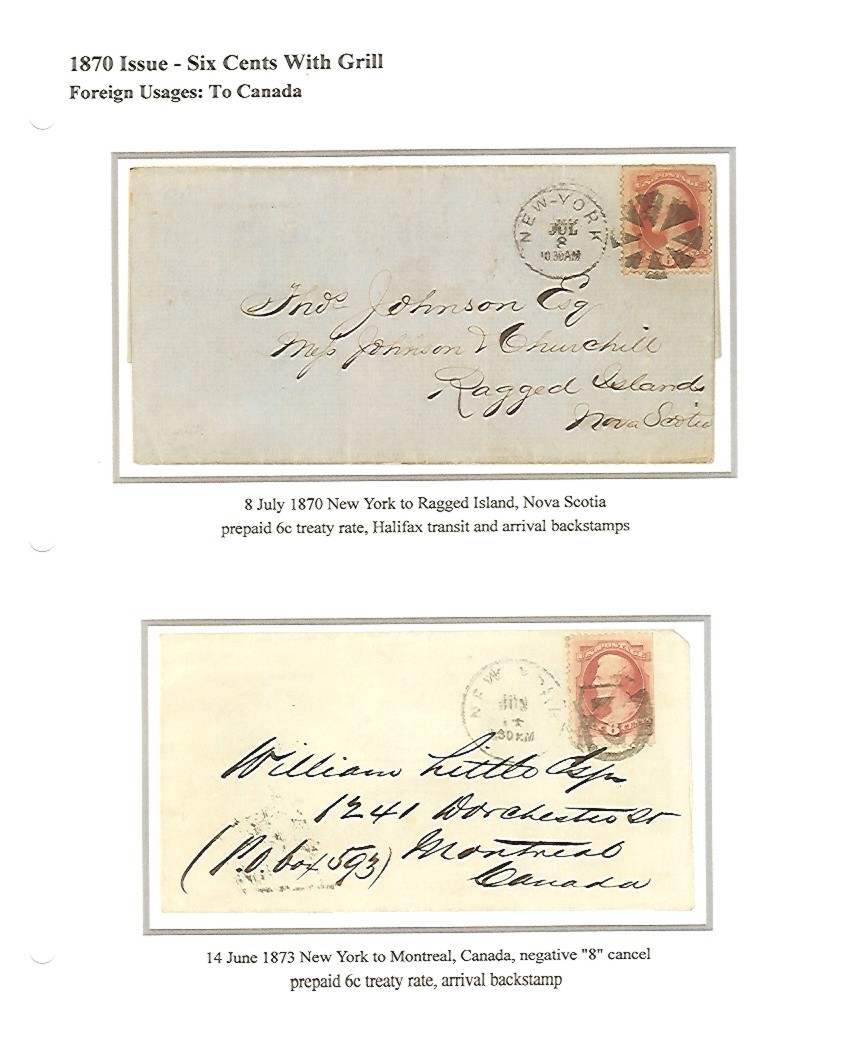 1870 Issue - Six Cents With Grill
Foreign Usages: To Canada
NEW-YORK
JUL
8
10.30AM
U.S. POSTAGE
Thos Johnson Esq
Mess Johnson & Churchill
Ragged Islands
Nova Scotia
8 July 1870 New York to Ragged Island, Nova Scotia
prepaid 6c treaty rate, Halifax transit and arrival backstamps
NEW YORK
JUN
14
U.S. POSTAGE
6 CENTS
William Little Esqr
1241 Dorchester St
(P.O. box 593) Montreal
Canada
14 June 1873 New York to Montreal, Canada, negative "8" cancel
prepaid 6c treaty rate, arrival backstamp